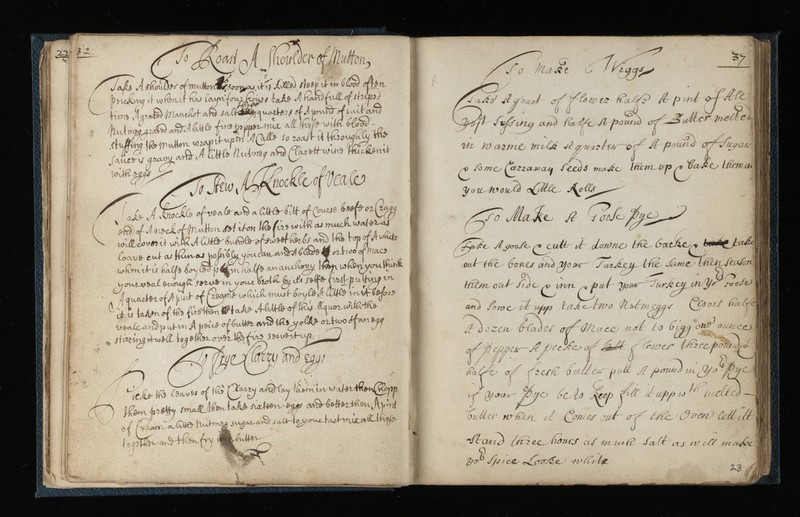 22 32
To Roast A Shoulder of Mutton
Take A shoulder of mutton soon as it is killed steep it in blood often
pricking it when it has layn four houres take A handfull of striped
time A grated Manchet and salt quarters of A pound of suit and
Nutmeg grated and A little fine pepper mix all these with blood
stuffing the Mutton wrap it up in A Calle so roast it throughly the
sauce is gravy and A little Nutmeg and Clarett wine thicken it
with eggs
To Stew A Knockle of Veale
Take A Knockle of veale and a little bitt of Course beefe or Cragg
end of A neck of Mutton set it on the fire with as much water as
will cover it with A little bundle of sweet herbs and the top of A white
loave cut as thin as possibly you can and A blade or two of mace
when it is halfe boyled put in halfe an anchovy then when you think
your veal enough serve in your broth by its selfe first putting in
A quarter of A pint of Creame which must boyle A little in it before
it is taken of the fire then take A little of this liquor with the
veale and put in A peice of butter and the yolke or two of an egg
stiring it well together over the fire serve it up
To frye Clarry and eggs
Take the leaves of the Clarry and lay them in water then Chopp
them pretty small then take sixteen eggs and beete them A pint
of Cream a little Nutmeg sugar and salt to your tast mix all these
together and then fry it butter
37
To Make Wiggs
Take A quart of flower halfe A pint of Ale
yest and halfe A pound of Butter melted
in warme milk A quarter of A pound of Sugar
& some Carraway seeds make them up & bake them as
you would Little Rolls
To Make A Goose Pye
Take A goose & cutt it downe the backe & take take
out the bones and your Turkey the same then season
them out side & inn & put your Turkey in yor Goose
and sowe it upp take two Nutmeggs Cloves halfe
A dozen blades of Mace not to bigg one ounce
of pepper A pecke of flower three pound &
halfe of fresh butter putt A pound in yor Pye
if your Pye be to keep fill it upp wth melted
butter when it Comes out of the Oven lett itt
stand three hours as much salt as will make
yor Spice Looke white
23